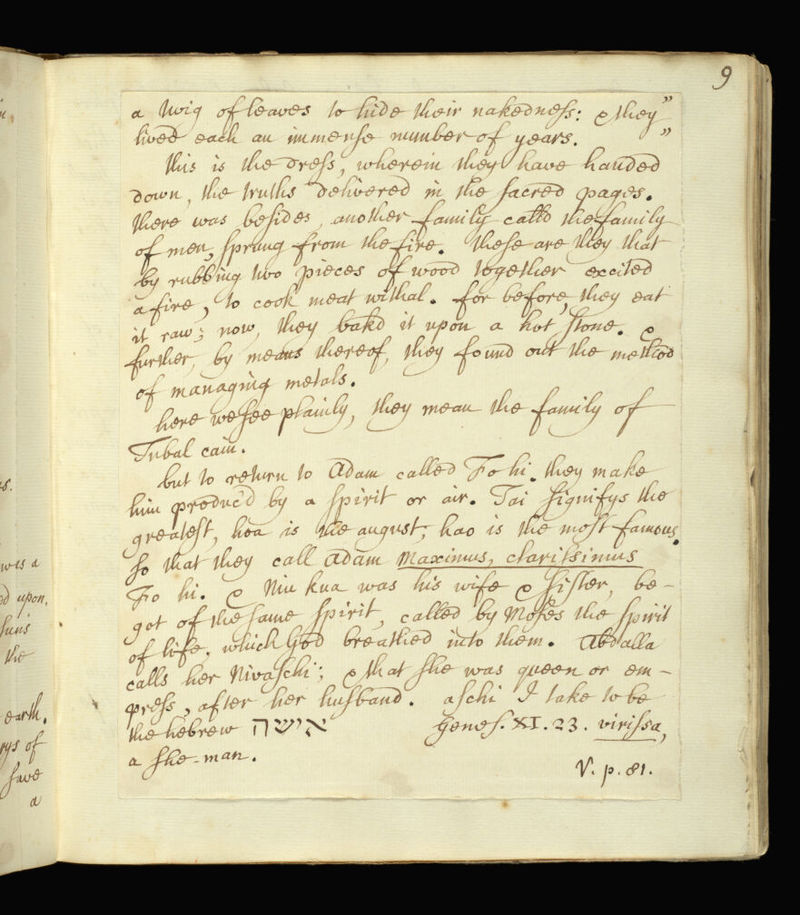 9
a twig of leaves to hide their nakedness: & they "
lived each an immense number of years. "
this is the dress, wherein they have handed
down, the truths delivered in the sacred pages.
there was besides, another family calld the family
of men, sprung from the fire. these are they that
by rubbing two pieces of wood together excited
a fire, to cook meat withal. for before, they eat
it raw; now, they bakd it upon a hot stone. &
further, by means thereof, they found out the method
of managing metals.
here we see plainly, they mean the family of
Tubal cain.
but to return to Adam called Fo hi. they make
him produc'd by a spirit or air. Tai signifys the
greatest, hoa is the august, hao is the most famous.
so that they call Adam Maximus, clarissimus
Fo hi. & Niu kua was his wife & sister, be-
got of the same spirit, called by Moses the spirit
of life. which God breathed into them. Abdalla
calls her Nivaschi; & that she was queen or em-
press, after her husband. aschi I take to be
the hebrew אישה Genes. XI. 23. virissa,
a she-man.
V. p. 81.
was a
upon.
the
earth.
of
have
a